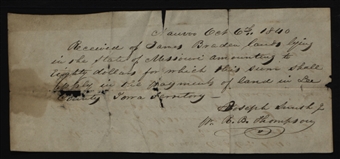 Nauvoo Oct 6th, 1840
Received of James Braden lands lying
in the State of Missouri amounting to
Eighty dollars for which this seven shall
apply in the payments of land in Lee
County Iowa Territory
Joseph Smith Jr
pr R. B. Thompson